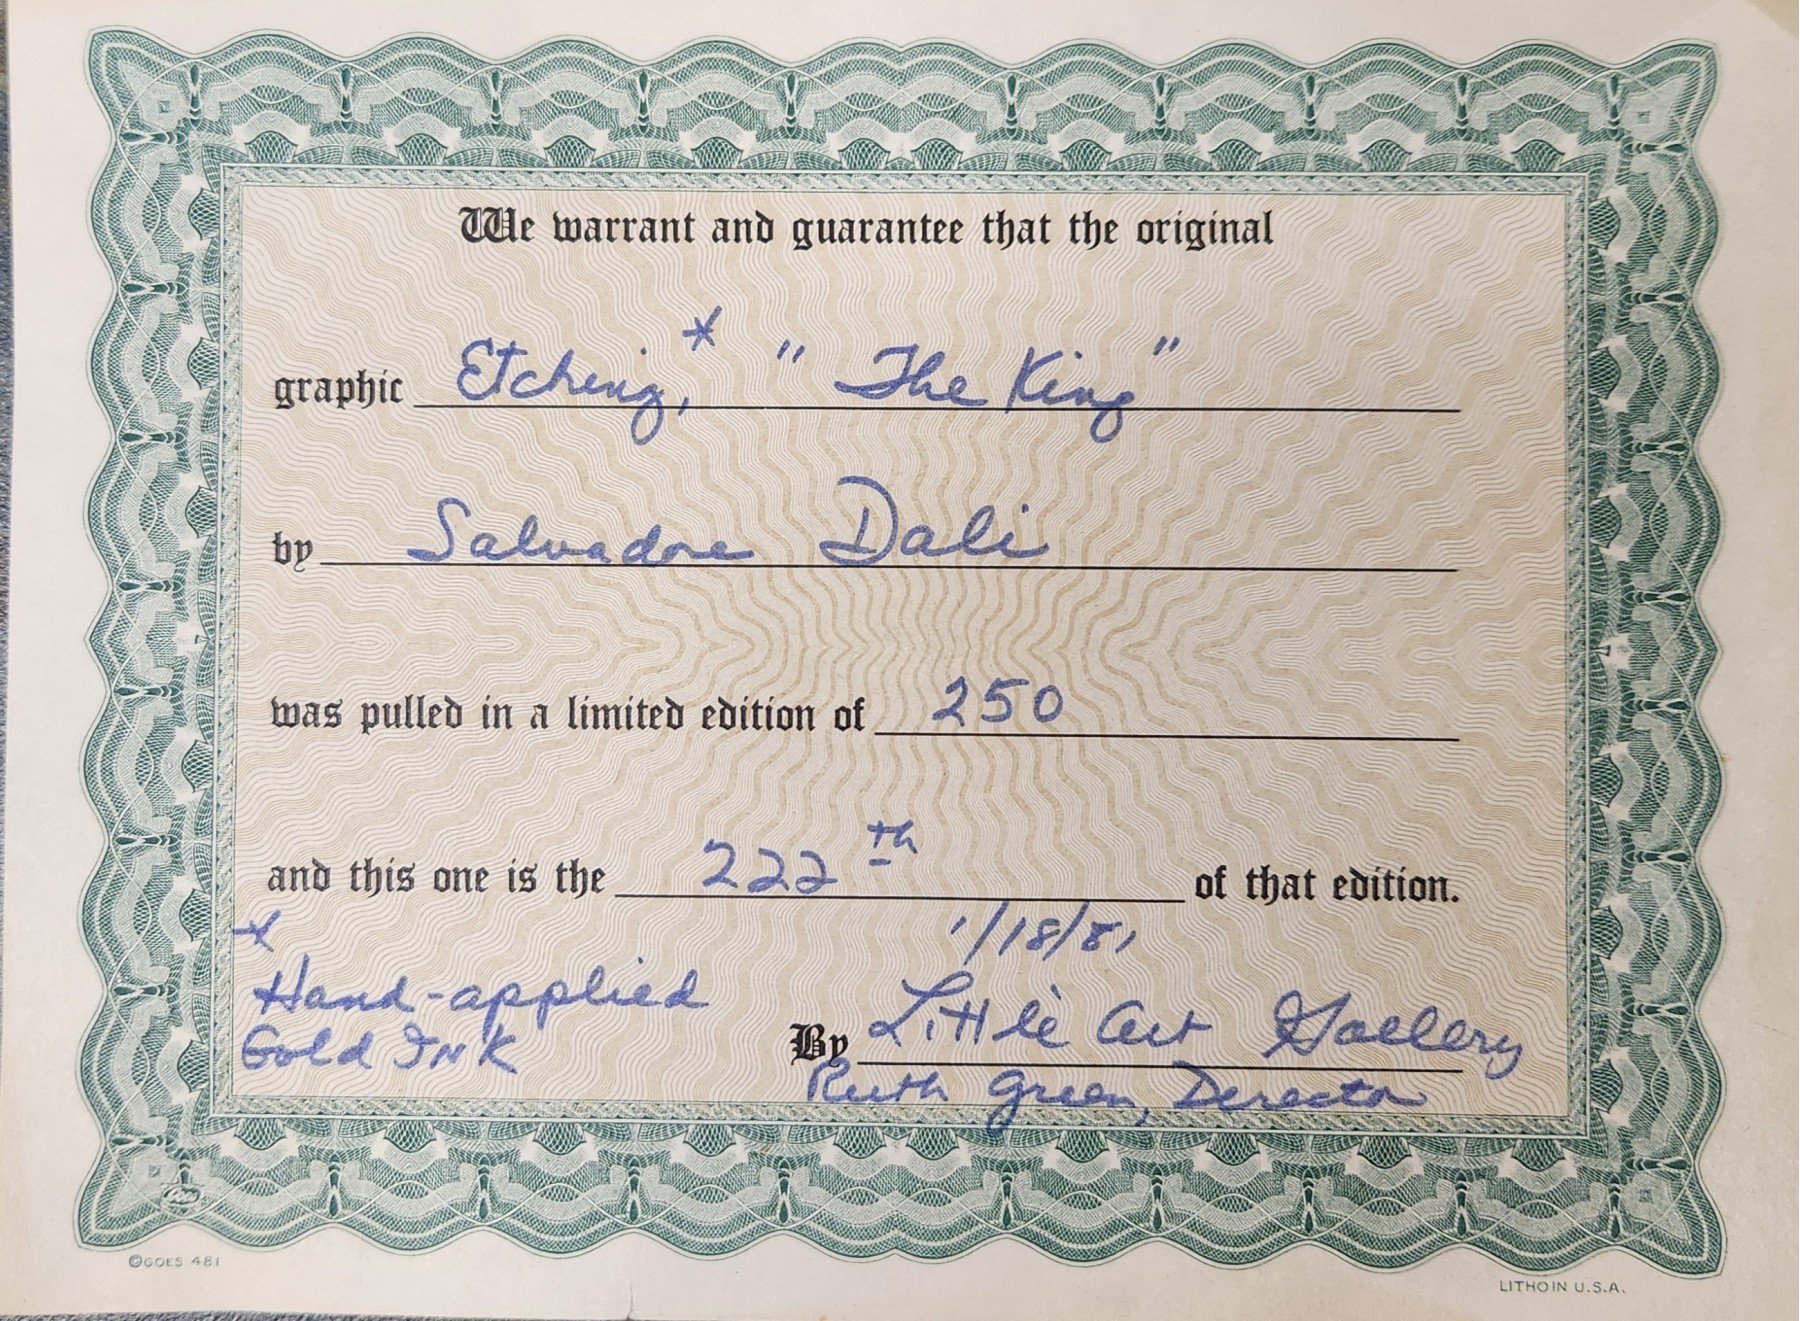 We warrant and guarantee that the original
graphic Etching,* "The King"
by Salvadore Dali
was pulled in a limited edition of 250
and this one is the 222th of that edition.
1/18/81
* Hand-applied
Gold Ink
By Little Art Gallery
Ruth Green, Director
©GOES 481
LITHO IN U.S.A.